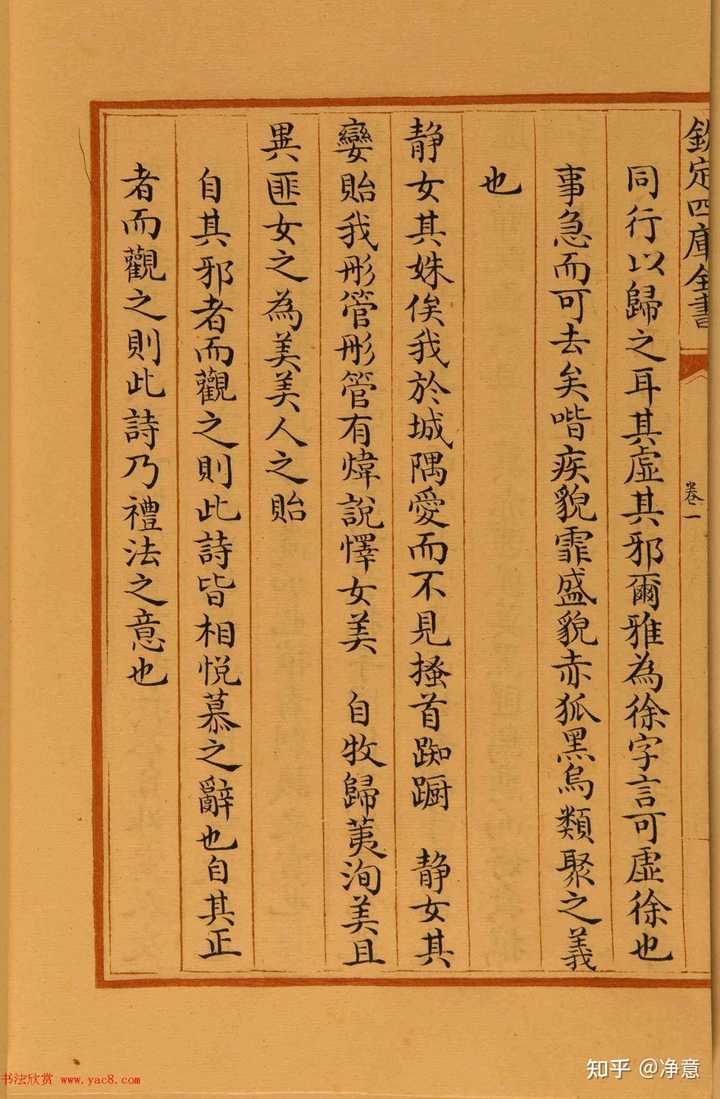 欽定四庫全書
卷一
同行以歸之耳其虛其邪爾雅為徐字言可虛徐也
事急而可去矣喈疾貌霏盛貌赤狐黑烏類聚之義
也
靜女其姝俟我於城隅愛而不見搔首踟蹰 靜女其
孌貽我彤管彤管有煒說懌女美 自牧歸荑洵美且
異匪女之為美美人之貽
自其邪者而觀之則此詩皆相悅慕之辭也自其正
者而觀之則此詩乃禮法之意也
书法欣赏 www.yac8.com
知乎 @净意